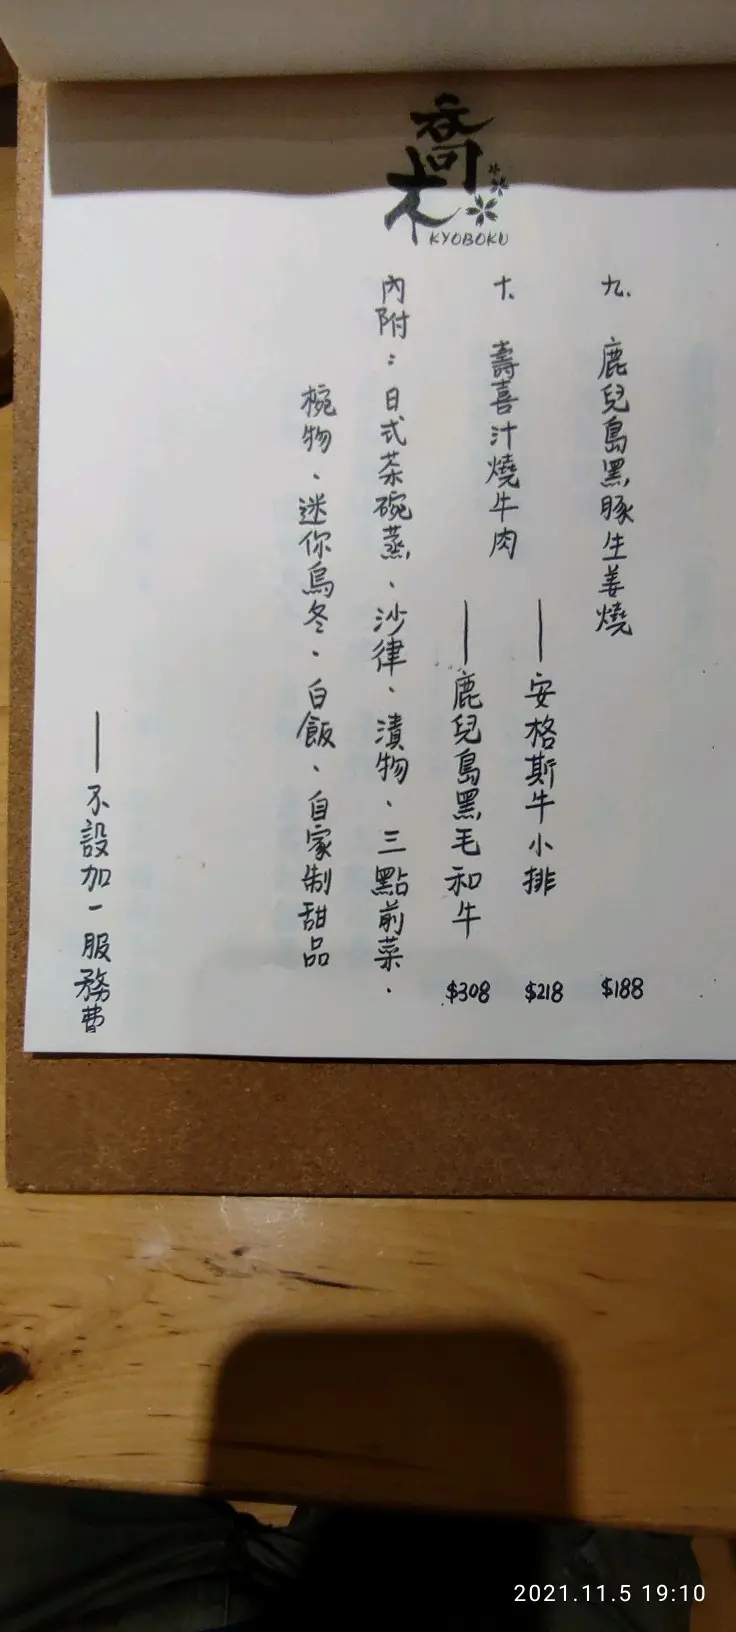 喬木
KYOBOKU
九、鹿兒島黑豚生姜燒 $188
十、壽喜汁燒牛肉
—安格斯牛小排 $218
—鹿兒島黑毛和牛 $308
內附：日式茶碗蒸、沙律、漬物、三點前菜、
椀物、迷你烏冬、白飯、自家制甜品
—不設加一服務費
2021.11.5 19:10